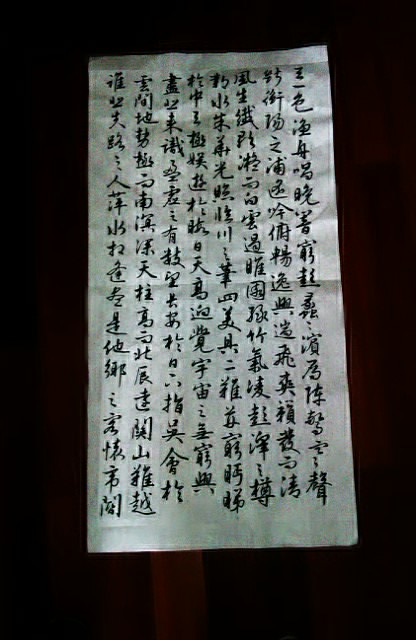 天一色漁舟唱晚響窮彭蠡之濱雁陣驚寒聲
斷衡陽之浦遙吟俯暢逸興遄飛爽籟發而清
風生纖歌凝而白雲遏睢園綠竹氣凌彭澤之樽
鄴水朱華光照臨川之筆四美具二難并窮眄睇
於中天極娛遊於暇日天高迥覺宇宙之無窮興
盡悲來識盈虛之有數望長安於日下指吳會於
雲間地勢極而南溟深天柱高而北辰遠關山難越
誰悲失路之人萍水相逢盡是他鄉之客懷帝閽